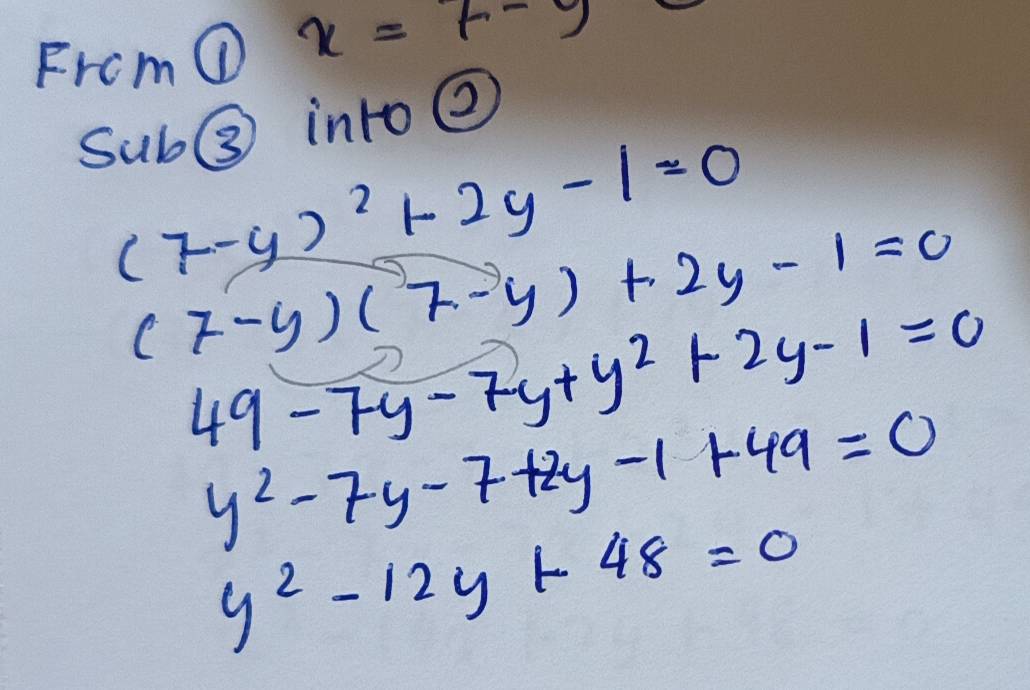 From ① x = 7-y
Sub ③ into ②
(7-y)² + 2y - 1 = 0
(7-y)(7-y) + 2y - 1 = 0
49 - 7y - 7y + y² + 2y - 1 = 0
y² - 7y - 7 + 2y - 1 + 49 = 0
y² - 12y + 48 = 0